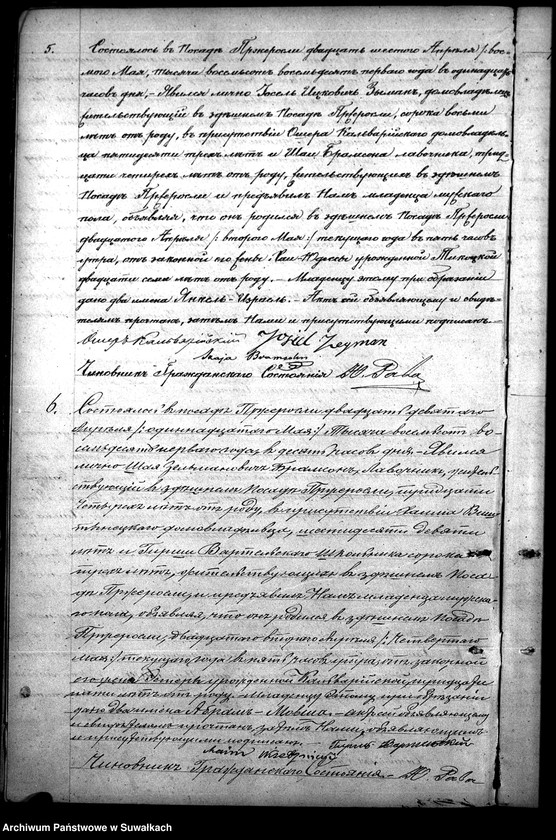 5. Состоялось въ Посадѣ Пржеросли двадцать шестого Апрѣля /: вось-
мого Мая, тысяча восемьсотъ восемьдесятъ перваго года въ одинадцать
часовъ дня, – Явился лично Іосель Ицковичъ Зыманъ, домовладѣлецъ
жительствующій въ здѣшнемъ Посадѣ Пржеросли, сорока восьми
лѣтъ отъ роду, въ присутствіи Ошера Кальварійскаго домовладѣль-
ца пятидесяти трехъ лѣтъ и Шаи Брамсона лавочника, трид-
цати четырехъ лѣтъ отъ роду, жительствующихъ въ здѣшнемъ
Посадѣ Пржеросли и предъявилъ Намъ младенца мужескаго
пола, объявляя, что онъ родился въ здѣшнемъ Посадѣ Пржеросли
двадцатаго Апрѣля /: второго Мая :/ текущаго года въ пять часовъ
утра, отъ законной его жены Хаи Юдесы урожденной
двадцати семи лѣтъ отъ роду. – Младенцу этому при обрѣзаніи
дано два имени Янкель-Израель. – Актъ сей объявляющему и свидѣ-
телямъ прочтенъ, затѣмъ Нами и присутствующими подписанъ. –
Ошеръ Кальварійский Josiel Zeyman
Szaja Bramsohn
Чиновникъ Гражданскаго Состоянія Ю. Рава
6. Состоялось въ посадѣ Пржеросли двадцать девятаго
Апрѣля /: одинадцатаго Мая :/ Тысяча восемьсотъ во-
семьдесятъ перваго года, въ десять часовъ дня. – Явился
лично Шая Зельмановичъ Брамсонъ, Лавочникъ, житель-
ствующій въ здѣшнемъ Посадѣ Пржеросли, тридцати
четырехъ лѣтъ отъ роду, въ присутствіи Хаима
домовладѣльца, шестидесяти девяти
лѣтъ и Гирши Вартельскаго Школьника сорока
трехъ лѣтъ, жительствующихъ въ здѣшнемъ Поса-
дѣ Пржеросли и предъявилъ Намъ младенца мужеска-
го пола, объявляя, что онъ родился въ здѣшнемъ посадѣ
Пржеросли, двадцать второго Апрѣля /: Четвертаго
мая :/ текущаго года въ пять часовъ утра, отъ законной
его жены Эстеры урожденной Кальварійской тридцати
лѣтъ отъ роду. – Младенцу этому при обрѣзаніи
дано два имена Абрамъ – Мовша. – актъ сей объявляющему
и свидѣтелямъ прочтенъ, затѣмъ Нами, объявляющимъ
и присутствующими подписанъ. –
Чиновникъ Гражданскаго Состоянія. – Ю. Рава
Archiwum Państwowe w Suwałkach